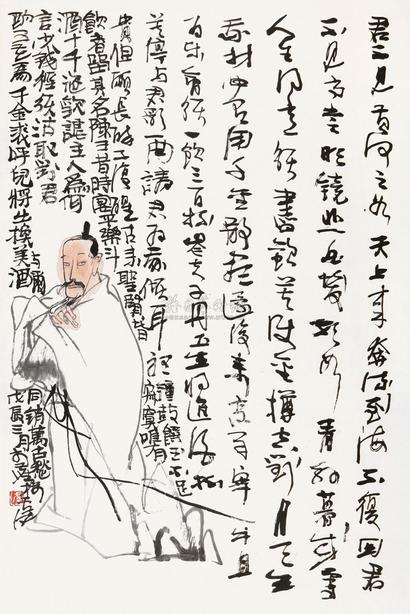 君不见黄河之水天上来奔流到海不復回君
不见高堂明镜悲白髪朝如青丝暮成雪
人生得意须尽歡莫使金樽空對月天生
我材必有用千金散尽還復来烹羊宰牛且
为乐會须一飲三百杯岑夫子丹丘生将進酒杯
莫停与君歌一曲請君为我倾耳听鐘鼓饌玉不足
貴但願長醉不復醒古来聖賢皆寂寞唯有
飲者留其名陳王昔時宴平樂斗
酒十千恣歡謔主人為何
言少錢徑须沽取對君
酌五花馬千金裘呼兒将出換美酒
与爾
同銷萬古愁
戊辰三月